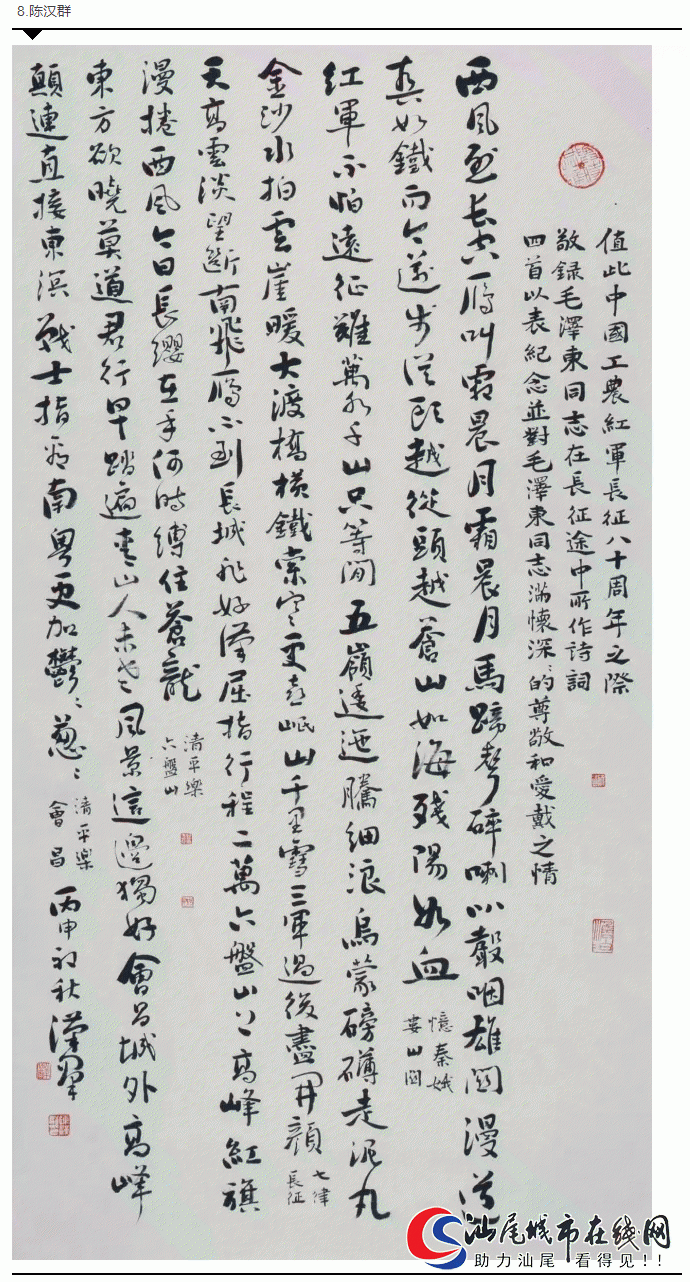 8.陈汉群
值此中國工農紅軍長征八十周年之際
敬録毛澤東同志在長征途中所作诗詞
四首以表紀念並對毛澤東同志滿懷深、的尊敬和愛戴之情
西風烈长空雁叫霜晨月霜晨月馬蹄聲碎喇叭聲咽雄関漫道
真如鐵而今邁步從頭越從頭越蒼山如海殘陽如血
憶秦娥
婁山関
红軍不怕遠征難萬水千山只等閒五嶺逶迤騰細浪烏蒙磅礴走泥丸
金沙水拍雲崖暖大渡橋横鐵索寒更喜岷山千里雪三軍過後盡開顔
七律
長征
天高雲淡望斷南飛雁不到長城非好漢屈指行程二萬六盤山上高峰紅旗
漫捲西風今日長纓在手何時縛住蒼龍
清平樂
六盤山
東方欲曉莫道君行早踏遍青山人未老風景這邊獨好會昌城外高峰
顛連直接東溟戰士指看南粤更加鬱、葱、
清平樂
會昌
丙申初秋漢羣
汕尾城市在线网
助力汕尾 看得见!!